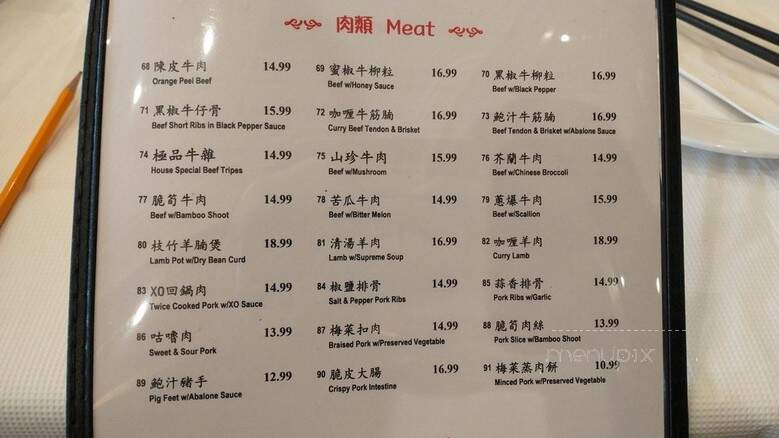 肉類 Meat
68 陳皮牛肉 14.99
Orange Peel Beef
69 蜜椒牛柳粒 16.99
Beef w/Honey Sauce
70 黑椒牛柳粒 16.99
Beef w/Black Pepper
71 黑椒牛仔骨 15.99
Beef Short Ribs in Black Pepper Sauce
72 咖喱牛筋腩 16.99
Curry Beef Tendon & Brisket
73 鮑汁牛筋腩 16.99
Beef Tendon & Brisket w/Abalone Sauce
74 極品牛雜 14.99
House Special Beef Tripes
75 山珍牛肉 15.99
Beef w/Mushroom
76 芥蘭牛肉 14.99
Beef w/Chinese Broccoli
77 脆筍牛肉 14.99
Beef w/Bamboo Shoot
78 苦瓜牛肉 14.99
Beef w/Bitter Melon
79 蔥爆牛肉 15.99
Beef w/Scallion
80 枝竹羊腩煲 18.99
Lamb Pot w/Dry Bean Curd
81 清湯羊肉 16.99
Lamb w/Supreme Soup
82 咖喱羊肉 18.99
Curry Lamb
83 XO回鍋肉 14.99
Twice Cooked Pork w/XO Sauce
84 椒鹽排骨 14.99
Salt & Pepper Pork Ribs
85 蒜香排骨 14.99
Pork Ribs w/Garlic
86 咕嚕肉 13.99
Sweet & Sour Pork
87 梅菜扣肉 14.99
Braised Pork w/Preserved Vegetable
88 脆筍肉絲 13.99
Pork Slice w/Bamboo Shoot
89 鮑汁豬手 12.99
Pig Feet w/Abalone Sauce
90 脆皮大腸 16.99
Crispy Pork Intestine
91 梅菜蒸肉餅 10.99
Minced Pork w/Preserved Vegetable
menupix